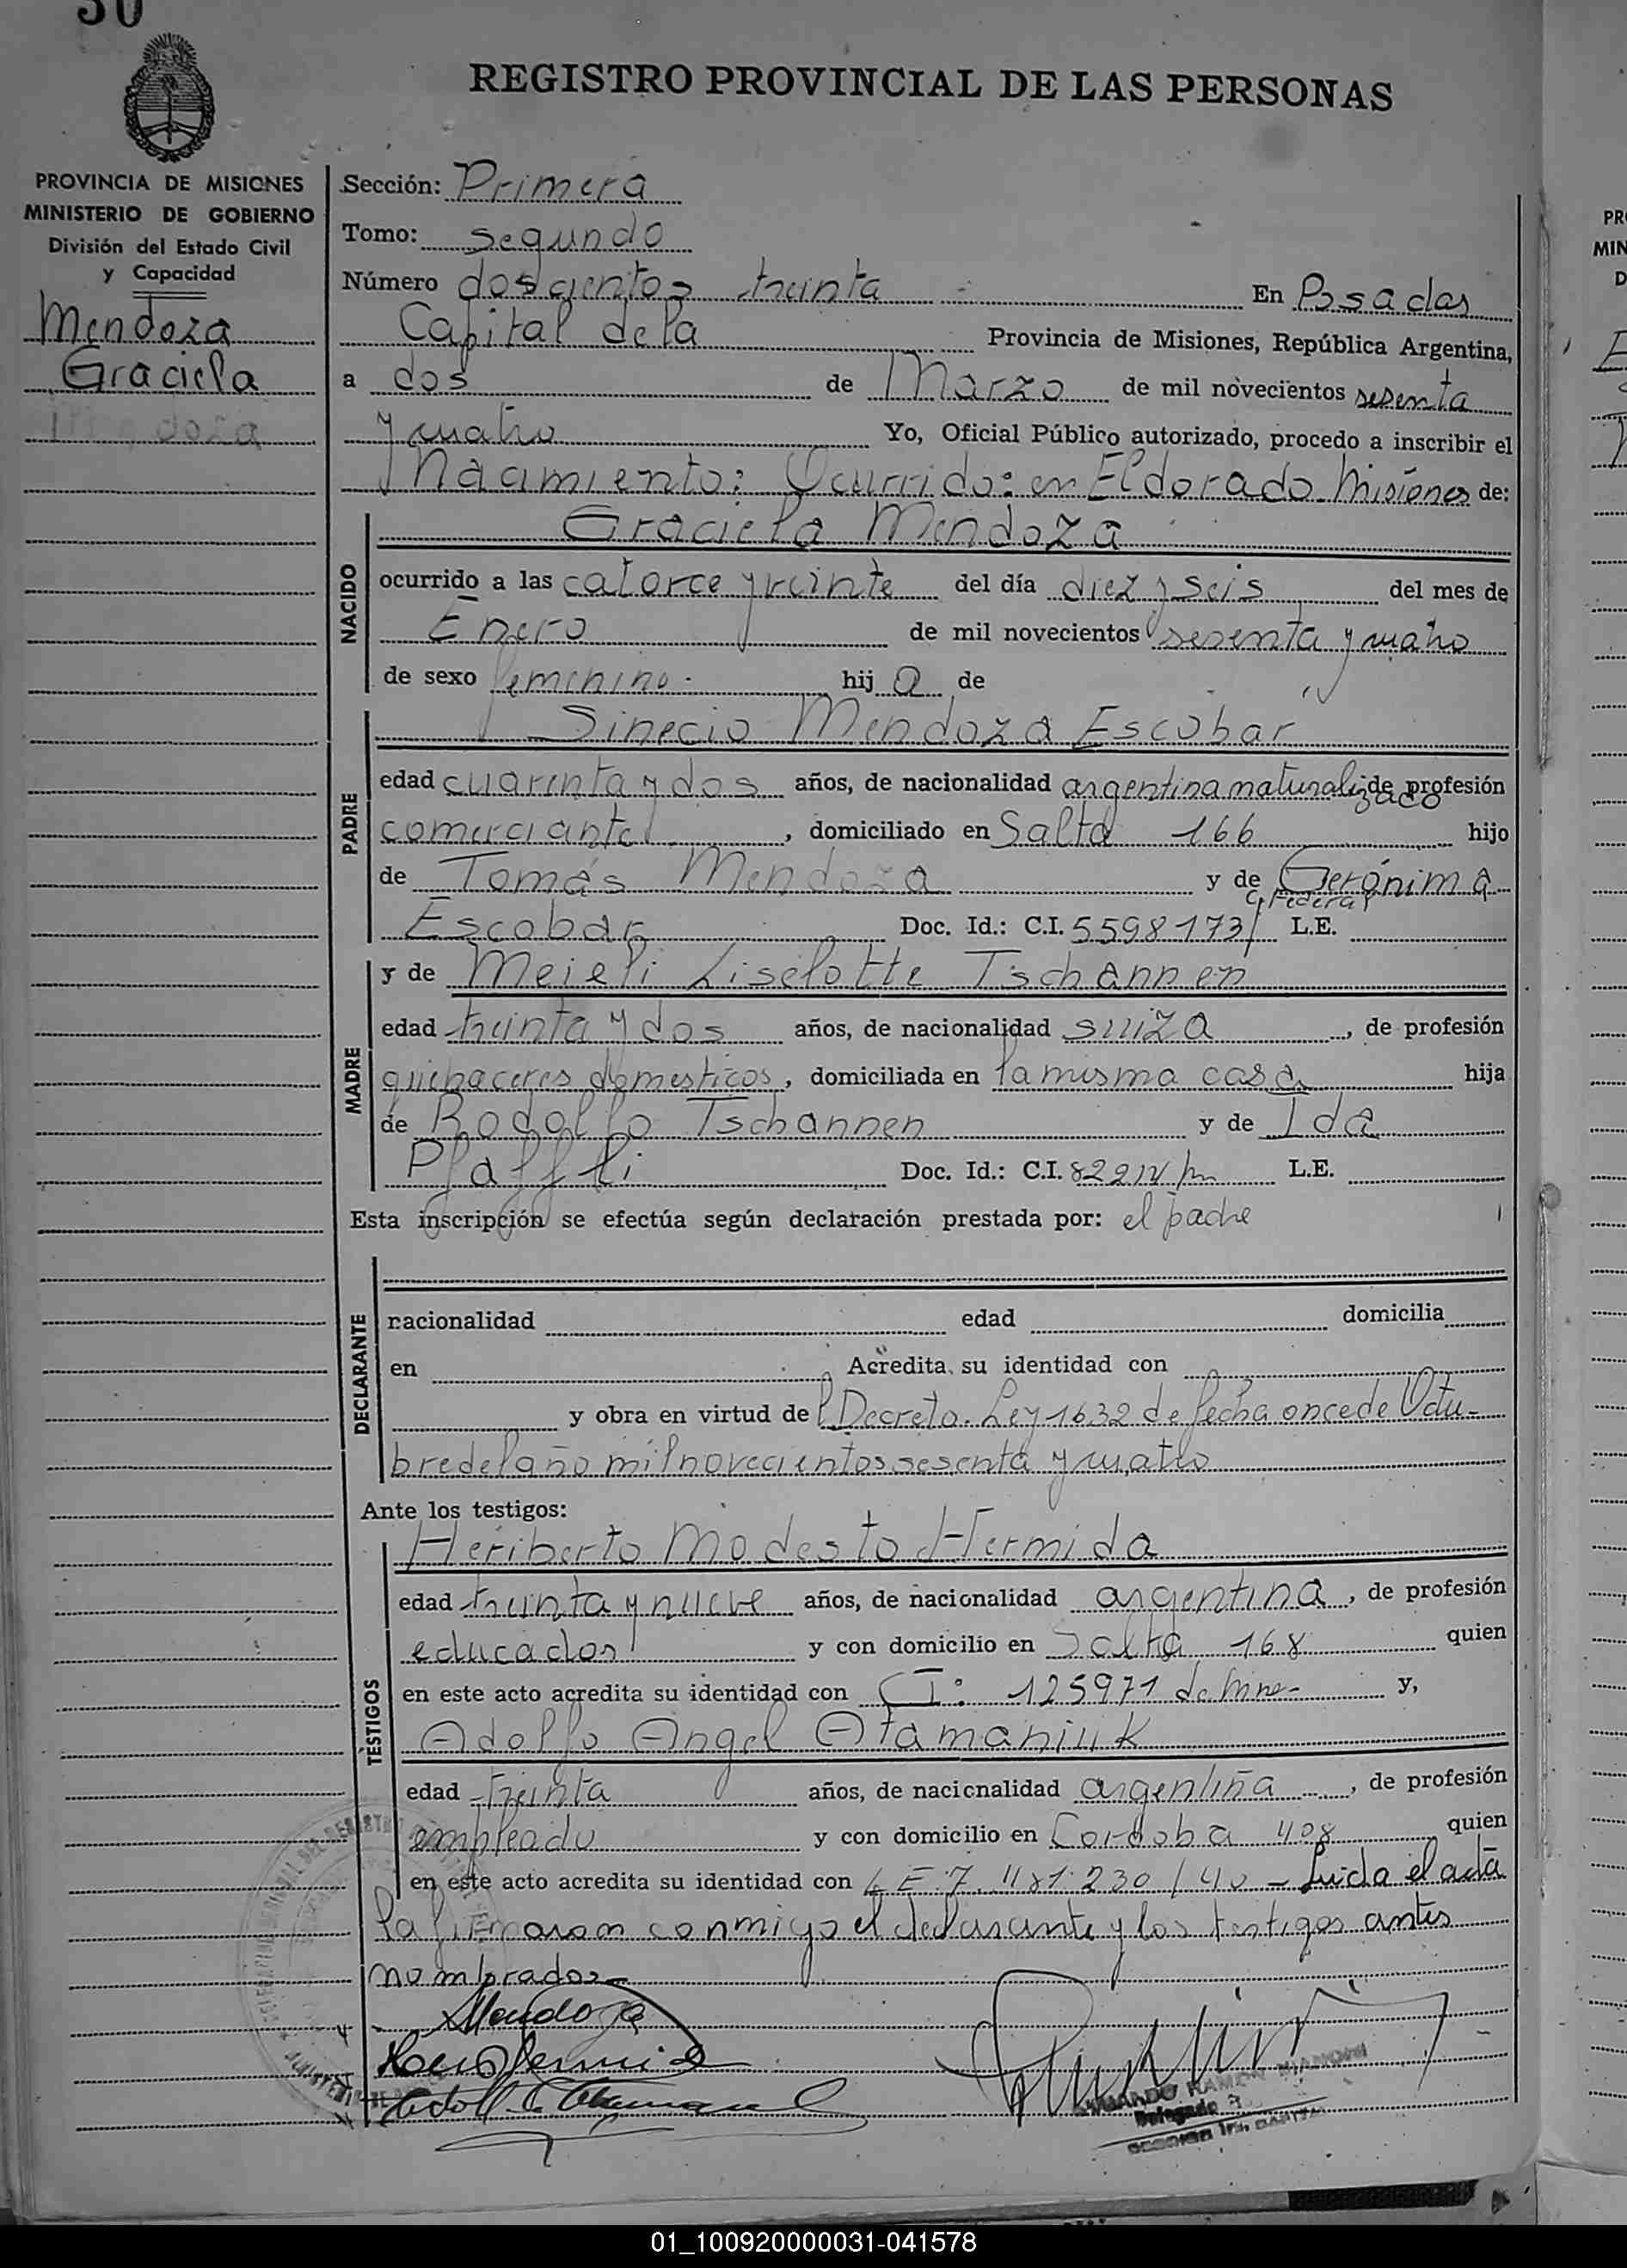 30
REGISTRO PROVINCIAL DE LAS PERSONAS
PROVINCIA DE MISIONES
MINISTERIO DE GOBIERNO
División del Estado Civil
y Capacidad
Mendoza
Graciela
Sección: Primera
Tomo: segundo
Número doscientos treinta En Posadas
Capital de la Provincia de Misiones, República Argentina,
a dos de Marzo de mil novecientos sesenta
y cuatro Yo, Oficial Público autorizado, procedo a inscribir el
Nacimiento: Ocurrido: en Eldorado Misiones de:
Graciela Mendoza
NACIDO
ocurrido a las catorce y veinte del día diez y seis del mes de
Enero de mil novecientos sesenta y cuatro
de sexo femenino. hij a de
Sinecio Mendoza Escobar
PADRE
edad cuarenta y dos años, de nacionalidad argentina naturalizado de profesión
comerciante, domiciliado en Salta 166 hijo
de Tomás Mendoza y de Gerónima
Escobar Doc. Id.: C.I. 5598173/ C. Federal L.E.
y de Meieli Liselotte Tschannen
MADRE
edad treinta y dos años, de nacionalidad suiza, de profesión
quehaceres domesticos, domiciliada en la misma casa hija
de Rodolfo Tschannen y de Ida
Pfaffli Doc. Id.: C.I. L.E.
Esta inscripción se efectúa según declaración prestada por: el padre
DECLARANTE
nacionalidad edad domicilia
en Acredita su identidad con
y obra en virtud del Decreto-Ley 1632 de fecha once de Octu-
bre del año mil novecientos sesenta y cuatro
Ante los testigos:
Heriberto Modesto Hermida
TESTIGOS
edad treinta y nueve años, de nacionalidad argentina, de profesión
educador y con domicilio en Salta 168 quien
en este acto acredita su identidad con CI: 125971 de Mnes- y,
Adolfo Angel Atamaniuk
edad treinta años, de nacionalidad argentina, de profesión
empleado y con domicilio en Cordoba 408 quien
en este acto acredita su identidad con L E. 7.481.230 / 40 - Leida el acta
la firmaron conmigo el declarante y los testigos antes
nombrados
Mendoza
01_100920000031-041578